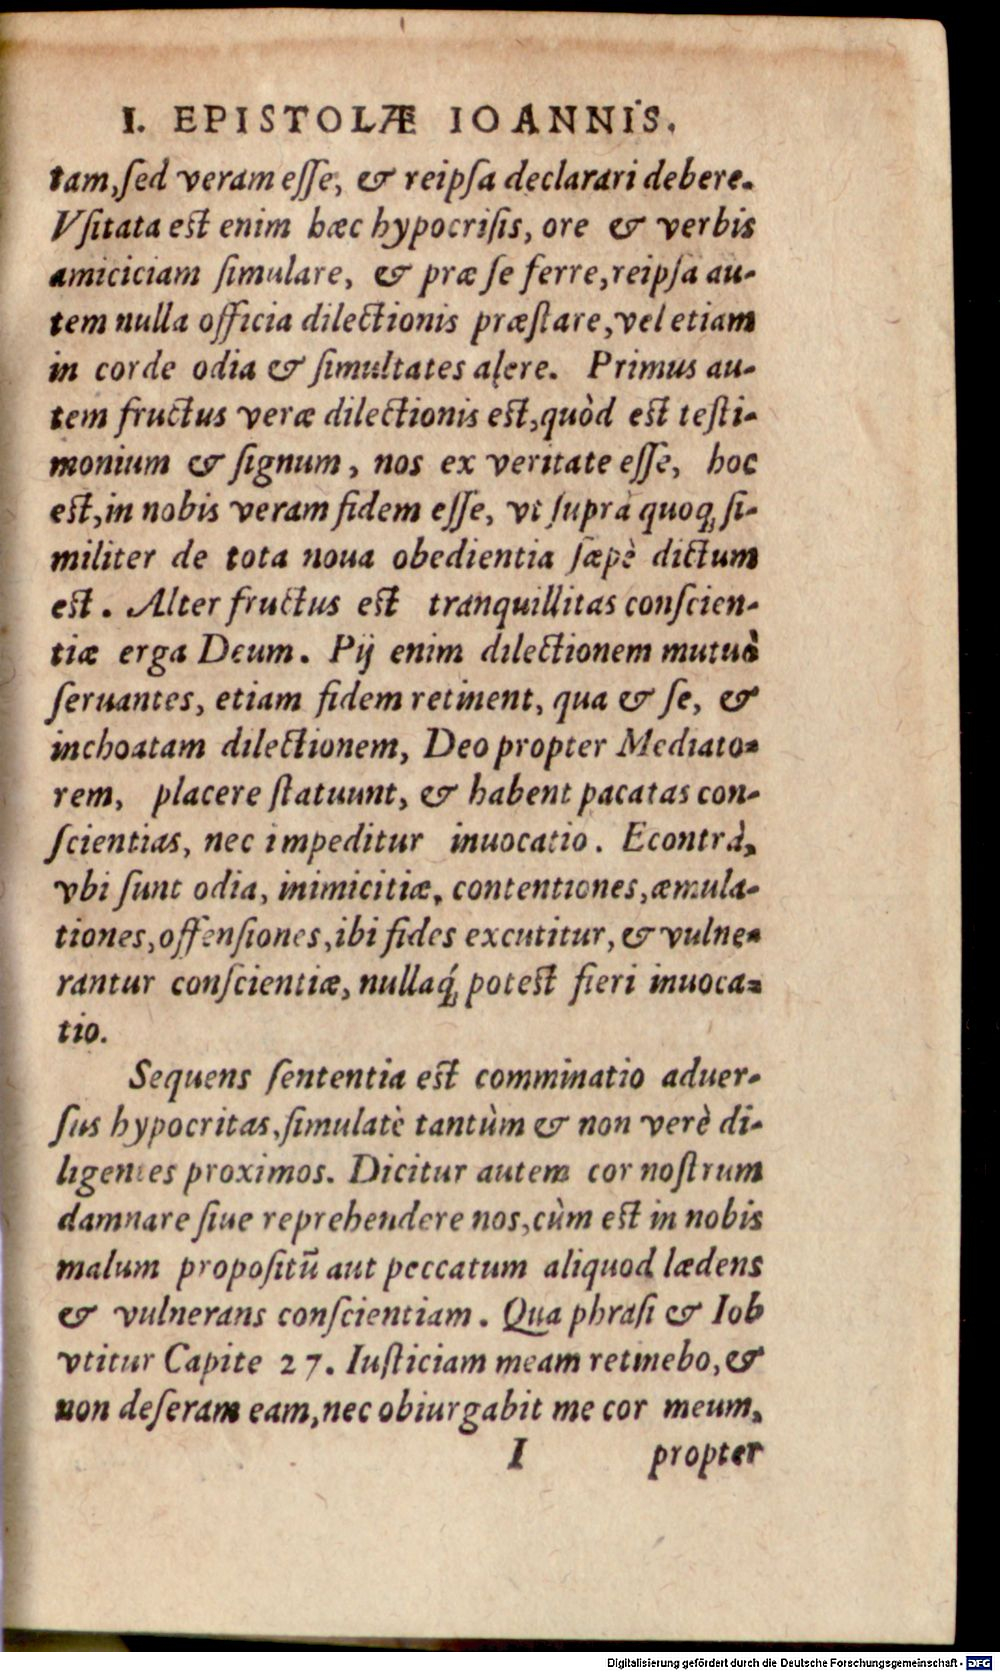 I. EPISTOLÆ IOANNIS.
tam, ſed veram eſſe, & reipſa declarari debere.
Vſitata est enim hæc hypocriſis, ore & verbis
amiciciam ſimulare, & præ ſe ferre, reipſa au-
tem nulla officia dilectionis præſtare, vel etiam
in corde odia & ſimultates alere. Primus au-
tem fructus veræ dilectionis est, quòd est teſti-
monium & ſignum, nos ex veritate eſſe, hoc
est, in nobis veram fidem eſſe, vt ſuprà quoq; ſi-
militer de tota noua obedientia ſæpè dictum
est. Alter fructus est tranquillitas conſcien-
tiæ erga Deum. Pij enim dilectionem mutuà
ſeruantes, etiam fidem retinent, qua & ſe, &
inchoatam dilectionem, Deo propter Mediato-
rem, placere ſtatuunt, & habent pacatas con-
ſcientias, nec impeditur inuocatio. Econtrà,
vbi ſunt odia, inimicitiæ, contentiones, æmula-
tiones, offenſiones, ibi fides excutitur, & vulne-
rantur conſcientiæ, nullaq́; potest fieri inuoca-
tio.
Sequens ſententia est comminatio aduer-
ſus hypocritas, ſimulatè tantùm & non verè di-
ligentes proximos. Dicitur autem cor noſtrum
damnare ſiue reprehendere nos, cùm est in nobis
malum propoſitū aut peccatum aliquod lædens
& vulnerans conſcientiam. Qua phraſi & Iob
vtitur Capite 27. Iuſticiam meam retinebo, &
non deſeram eam, nec obiurgabit me cor meum,
I propter
Digitalisierung gefördert durch die Deutsche Forschungsgemeinschaft - DFG